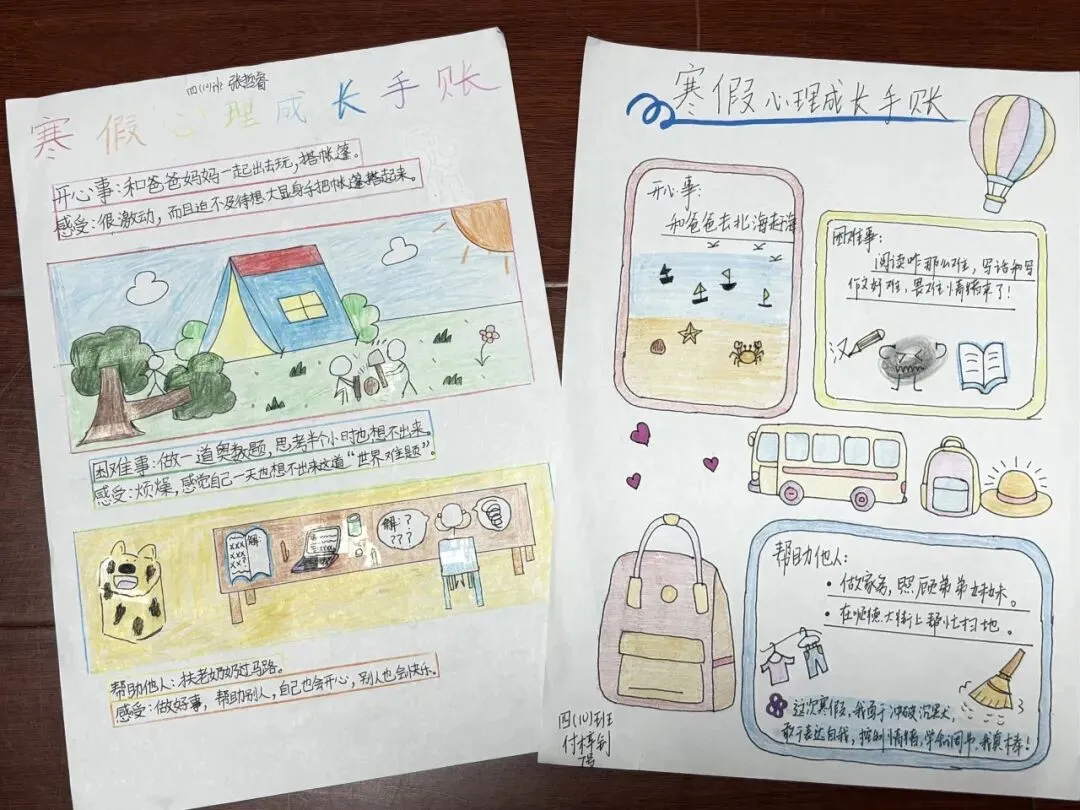 四(10)班 张哲睿
寒假心理成长手账
开心事：和爸爸妈妈一起出去玩，搭帐篷。
感受：很激动，而且迫不及待想大显身手把帐篷搭起来。
困难事：做一道奥数题，思考半个小时也想不出来。
感受：烦燥，感觉自己一天也想不出来这道“世界难题”。
解
xxx
xxx
xx?
解：?
???
帮助他人：扶老奶奶过马路。
感受：做好事，帮助别人，自己也会开心，别人也会快乐。
寒假心理成长手账
开心事：
和爸爸去北海赶海
困难事：
阅读咋那么难，写话和写
作文好难，畏难情绪来了！
汉
帮助他人：
• 做家务，照顾弟弟妹妹。
• 在顺德大街上帮忙扫地。
这次寒假，我勇于冲破沉默，
敢于表达自我，控制情绪，学会调节，我真棒！
四(10)班
7号